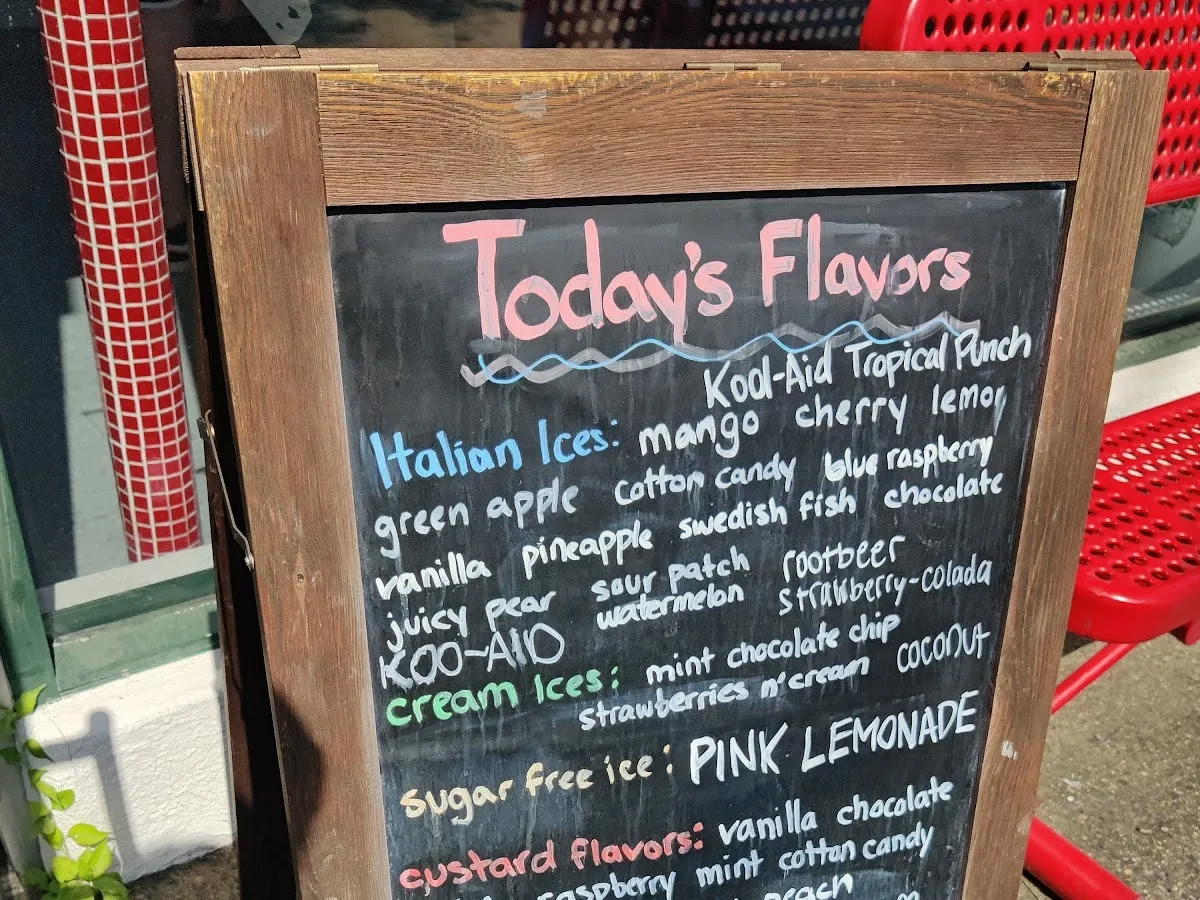 Today's Flavors
Kool-Aid Tropical Punch
Italian Ices: mango cherry lemon
green apple cotton candy blue raspberry
vanilla pineapple swedish fish chocolate
juicy pear sour patch watermelon rootbeer
KOO-AID strawberry-colada
cream Ices: mint chocolate chip
strawberries n'cream coconut
sugar free ice: PINK LEMONADE
custard flavors: vanilla chocolate
raspberry mint cotton candy
peach